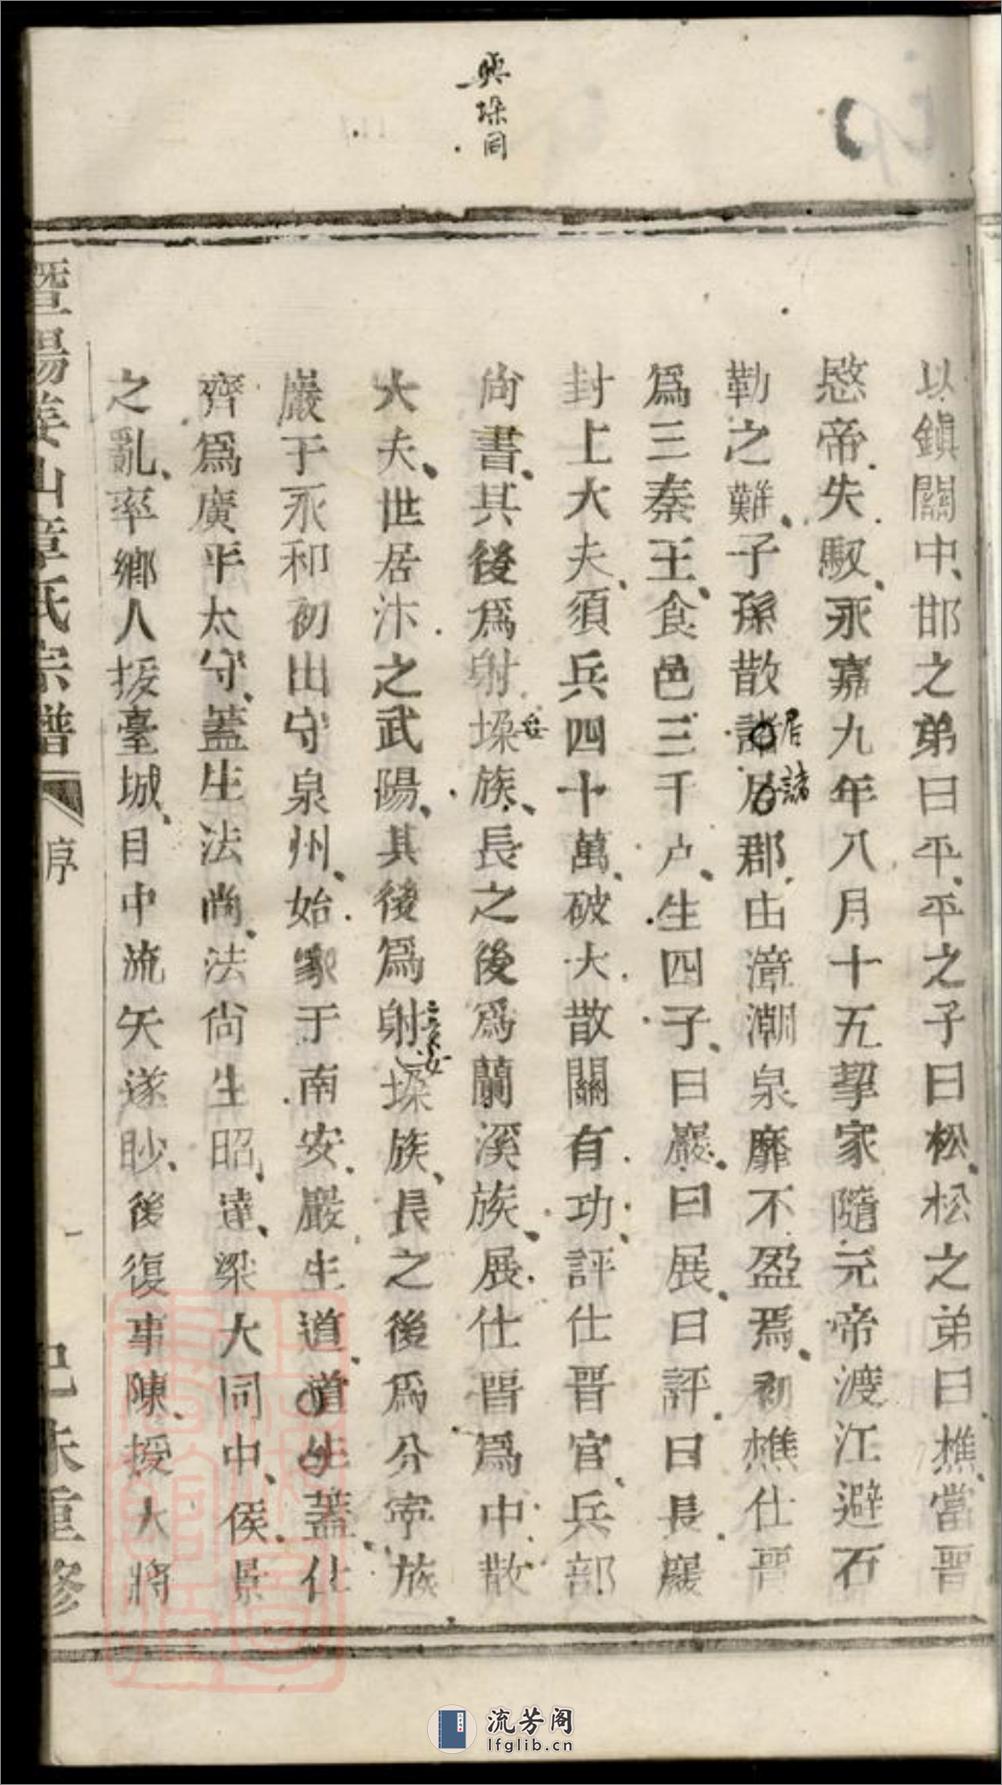 以鎮關中邯之弟曰平平之子曰松松之弟曰樵當晋
愍帝失馭永嘉九年八月十五挈家隨元帝渡江避石
勒之難子孫散諸居郡由漳潮泉靡不盈焉初樵仕晋
爲三秦王食邑三千户生四子曰巖曰展曰評曰長巖
封上大夫須兵四十萬破大散關有功評仕晋官兵部
尚書其後爲射垜族長之後爲蘭溪族展仕晋爲中散
大夫世居汴之武陽其後爲射垜族長之後爲分寧族
巖于永和初出守泉州始家于南安巖生道道生蓋仕
齊爲廣平太守蓋生法尚法尚生昭達梁大同中侯景
之亂率鄉人援臺城目中流矢遂眇後復事陳授大將
暨陽姜山章氏宗譜
序
一
己未重修
與垜同
居諸
流芳阁
lfglib.cn